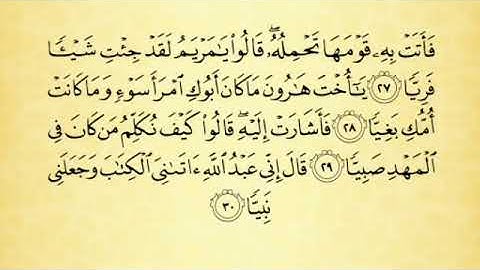 فَأَتَتْ بِهِۦ قَوْمَهَا تَحْمِلُهُۥ ۖ قَالُوا۟ يَـٰمَرْيَمُ لَقَدْ جِئْتِ شَيْـًٔا
فَرِيًّا ٢٧ يَـٰٓأُخْتَ هَـٰرُونَ مَا كَانَ أَبُوكِ ٱمْرَأَ سَوْءٍ وَمَا كَانَتْ
أُمُّكِ بَغِيًّا ٢٨ فَأَشَارَتْ إِلَيْهِ ۖ قَالُوا۟ كَيْفَ نُكَلِّمُ مَن كَانَ فِى
ٱلْمَهْدِ صَبِيًّا ٢٩ قَالَ إِنِّى عَبْدُ ٱللَّهِ ءَاتَىٰنِىَ ٱلْكِتَـٰبَ وَجَعَلَنِى
نَبِيًّا ٣٠